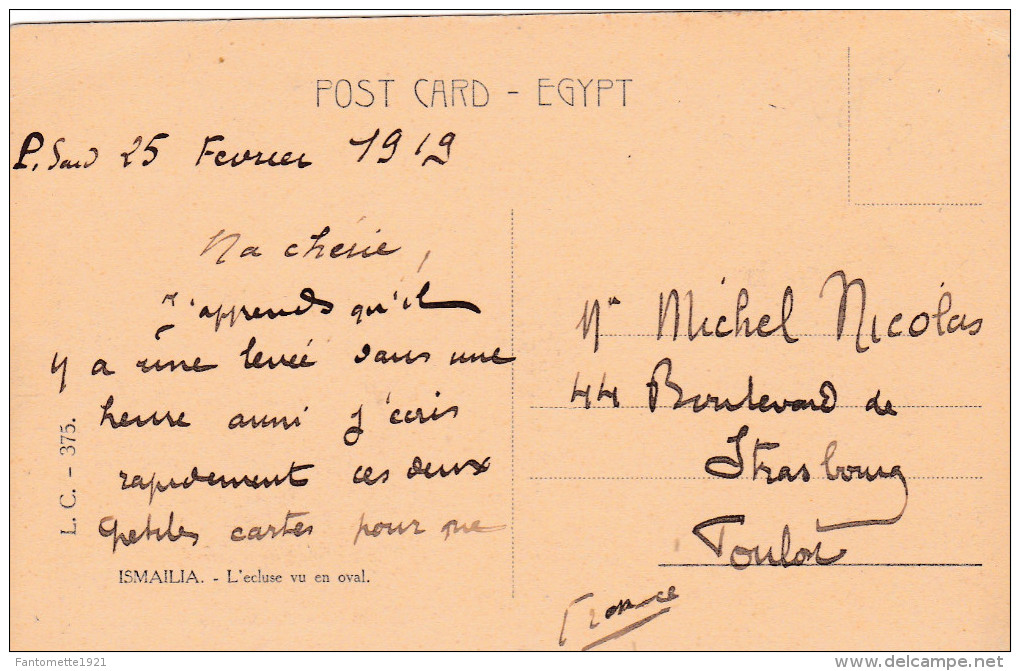 POST CARD - EGYPT
P. Said 25 Fevrier 1919
Ma chérie,
J'apprends qu'il
y a une levée dans une
heure aussi j'écris
rapidement ces deux
petites cartes pour que
L. C. - 375.
ISMAILIA. - L'ecluse vu en oval.
Michel Nicolas
44 Boulevard de
Strasbourg
Toulon
France
Fantomette1921
www.delcampe.net